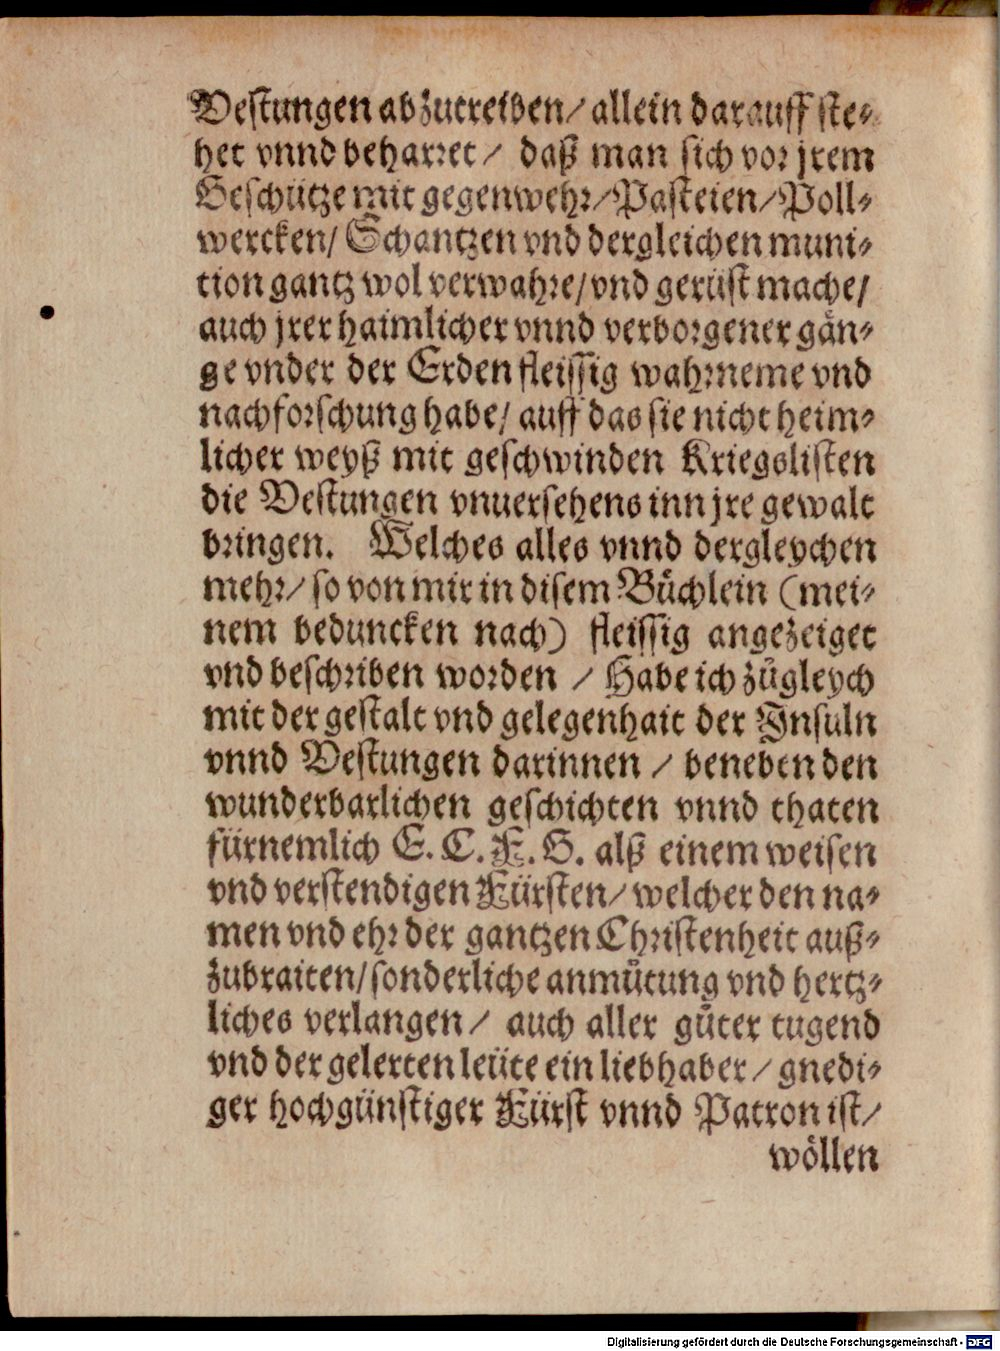 Vestungen abzutreiben/ allein darauff ste-
het vnnd beharret/ daß man sich vor jrem
Geschütze mit gegenwehr/Pasteien/Poll-
wercken/ Schantzen vnd dergleichen muni-
tion gantz wol verwahre/vnd gerüst mache/
auch jrer haimlicher vnnd verborgener gän-
ge vnder der Erden fleissig wahrneme vnd
nachforschung habe/ auff das sie nicht heim-
licher weyß mit geschwinden Kriegslisten
die Vestungen vnuersehens inn jre gewalt
bringen. Welches alles vnnd dergleychen
mehr/ so von mir in disem Büchlein (mei-
nem beduncken nach) fleissig angezeiget
vnd beschriben worden / Habe ich zůgleych
mit der gestalt vnd gelegenhait der Insuln
vnnd Vestungen darinnen / beneben den
wunderbarlichen geschichten vnnd thaten
fürnemlich E. C. F. G. alß einem weisen
vnd verstendigen Fürsten/ welcher den na-
men vnd ehr der gantzen Christenheit auß-
zubraiten/sonderliche anmůtung vnd hertz-
liches verlangen/ auch aller gůter tugend
vnd der gelerten leüte ein liebhaber/ gnedi-
ger hochgünstiger Fürst vnnd Patron ist/
wöllen
Digitalisierung gefördert durch die Deutsche Forschungsgemeinschaft - DFG